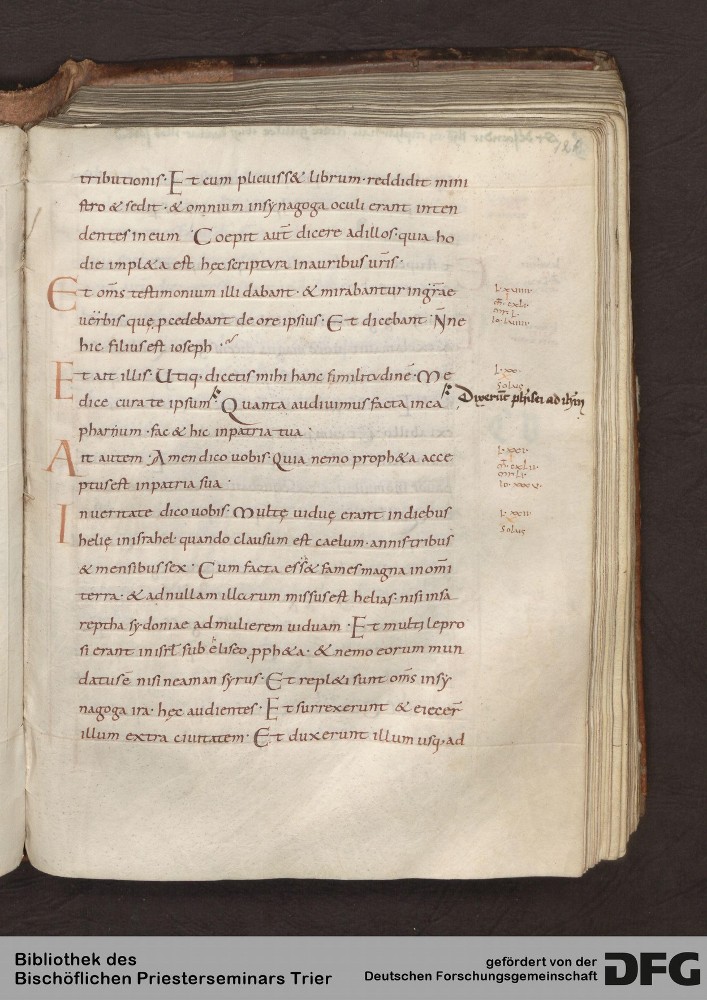 tributionis · Et cum plicuiss& librum · reddidit mini
stro & sedit · & omnium insynagoga oculi erant inten
dentes in eum · Coepit aut̄ dicere ad illos · quia ho
die impl&a est hęc scriptura in auribus uris̄ ·
Et om̄s testimonium illi dabant · & mirabantur in gr̄ae
uerbis quę pcedebant de ore ipsius · Et dicebant · N̄ne
hic filius est ioseph ·
Et ait illis · Utiq· dicetis mihi hanc similitudinē · Me
dice cura te ipsum · Quanta audiuimus facta in ca
pharnum · fac & hic in patria tua ·
Ait autem · Amen dico uobis · Quia nemo proph&a acce
ptus est in patria sua ·
In ueritate dico uobis · Multę uiduę erant in diebus
helię in israhel · quando clausum est caelum · annis tribus
& mensibus sex · Cum facta ess& fames magna in om̄i
terra · & ad nullam illarum missus est helias · nisi in sa
reptha sydoniae ad mulierem uiduam · Et multi lepro
si erant in isrł sub eliseo pph&a · & nemo eorum mun
datus ē nisi neaman syrus · Et repl&i sunt om̄s in sy
nagoga ira · hęc audientes · Et surrexerunt & eiecer̄
illum extra ciuitatem · Et duxerunt illum usq· ad
l · xviiii ·
l · xx ·
Solus
Dixerūt phīsei ad ihm̄
l · xxi ·
io · xxxv ·
l · xxii ·
Solus
Bibliothek des
Bischöflichen Priesterseminars Trier
gefördert von der
Deutschen Forschungsgemeinschaft
DFG